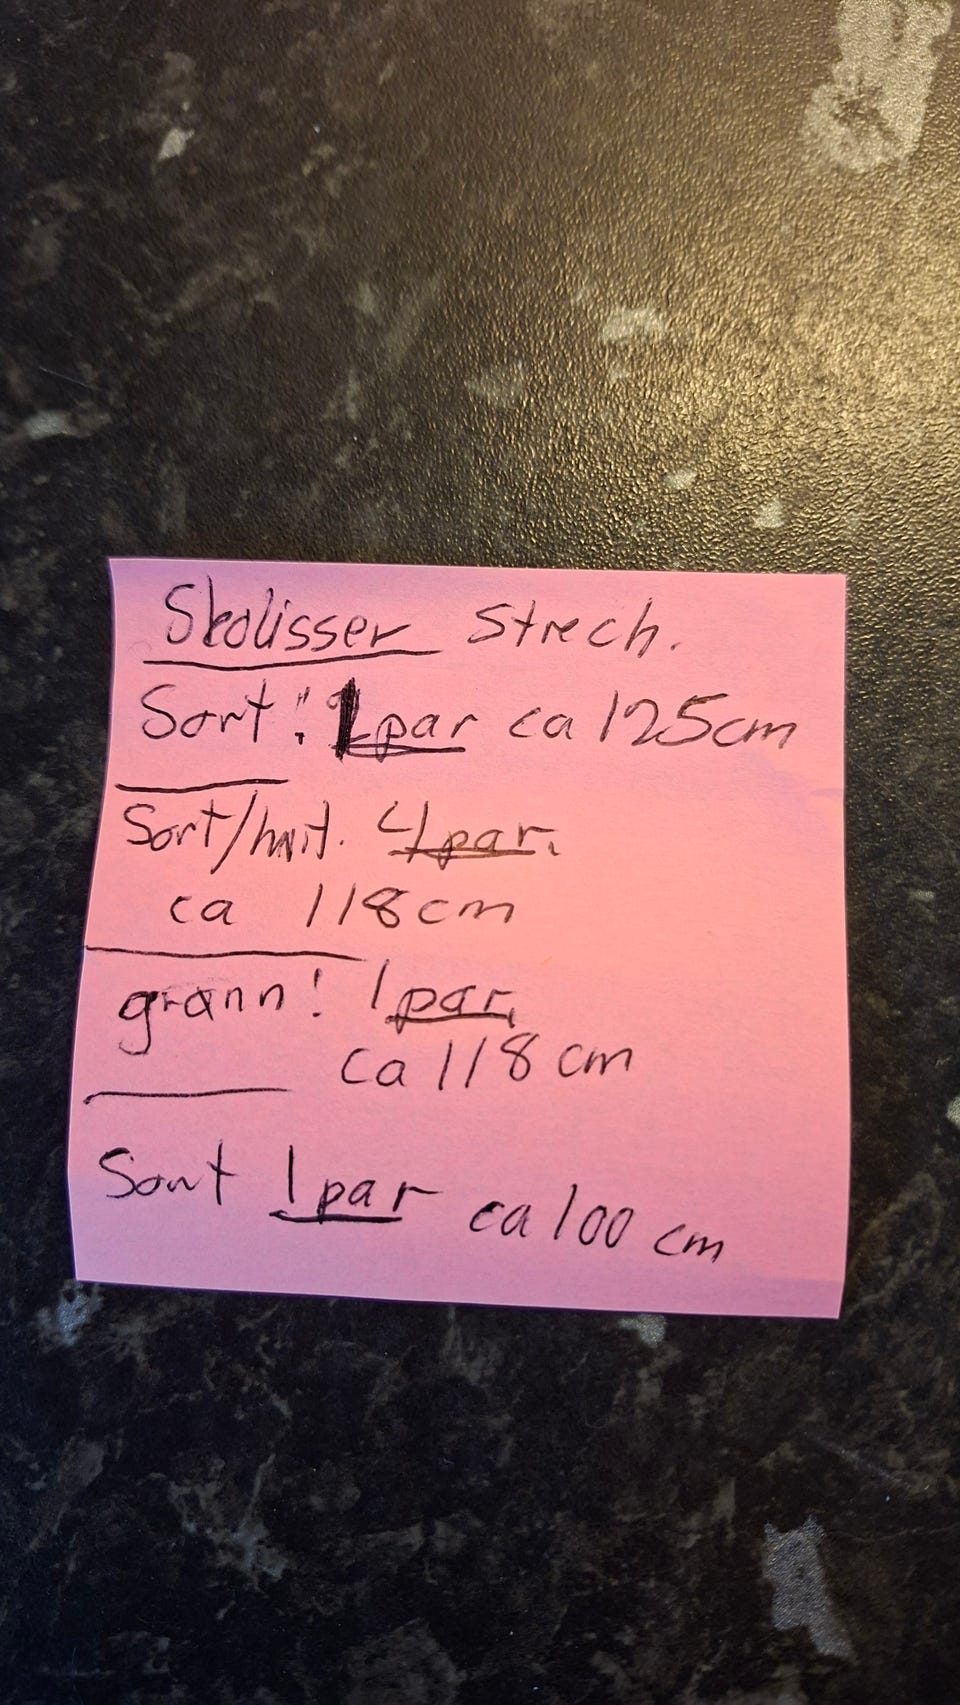 Skolisser Strech.
Sort: 1 par ca 125cm
Sort/hvit. 4 par.
ca 118cm
grønn! 1 par.
ca 118 cm
Sort 1 par ca 100 cm